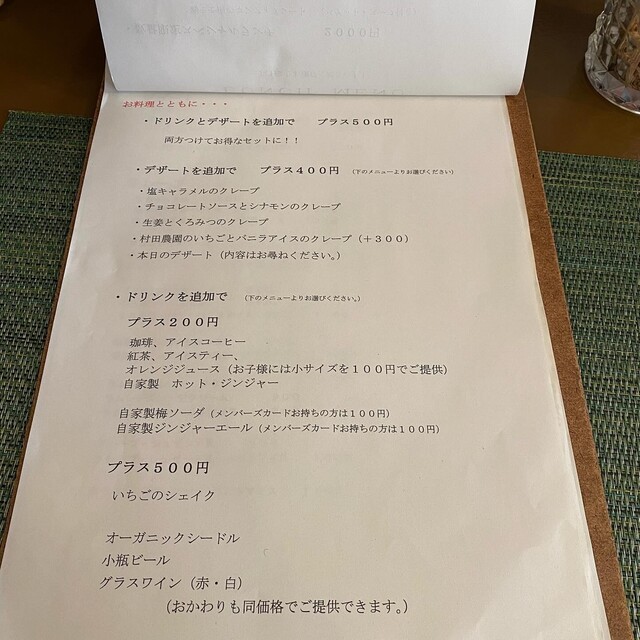 ２０００円
お料理とともに・・・
・ドリンクとデザートを追加で　プラス５００円
両方つけてお得なセットに！！
・デザートを追加で　プラス４００円　（下のメニューよりお選びください）
・塩キャラメルのクレープ
・チョコレートソースとシナモンのクレープ
・生姜とくろみつのクレープ
・村田農園のいちごとバニラアイスのクレープ（＋３００）
・本日のデザート（内容はお尋ねください。）
・ドリンクを追加で　（下のメニューよりお選びください。）
プラス２００円
珈琲、アイスコーヒー
紅茶、アイスティー、
オレンジジュース（お子様には小サイズを１００円でご提供）
自家製　ホット・ジンジャー
自家製梅ソーダ（メンバーズカードお持ちの方は１００円）
自家製ジンジャーエール（メンバーズカードお持ちの方は１００円）
プラス５００円
いちごのシェイク
オーガニックシードル
小瓶ビール
グラスワイン（赤・白）
（おかわりも同価格でご提供できます。）